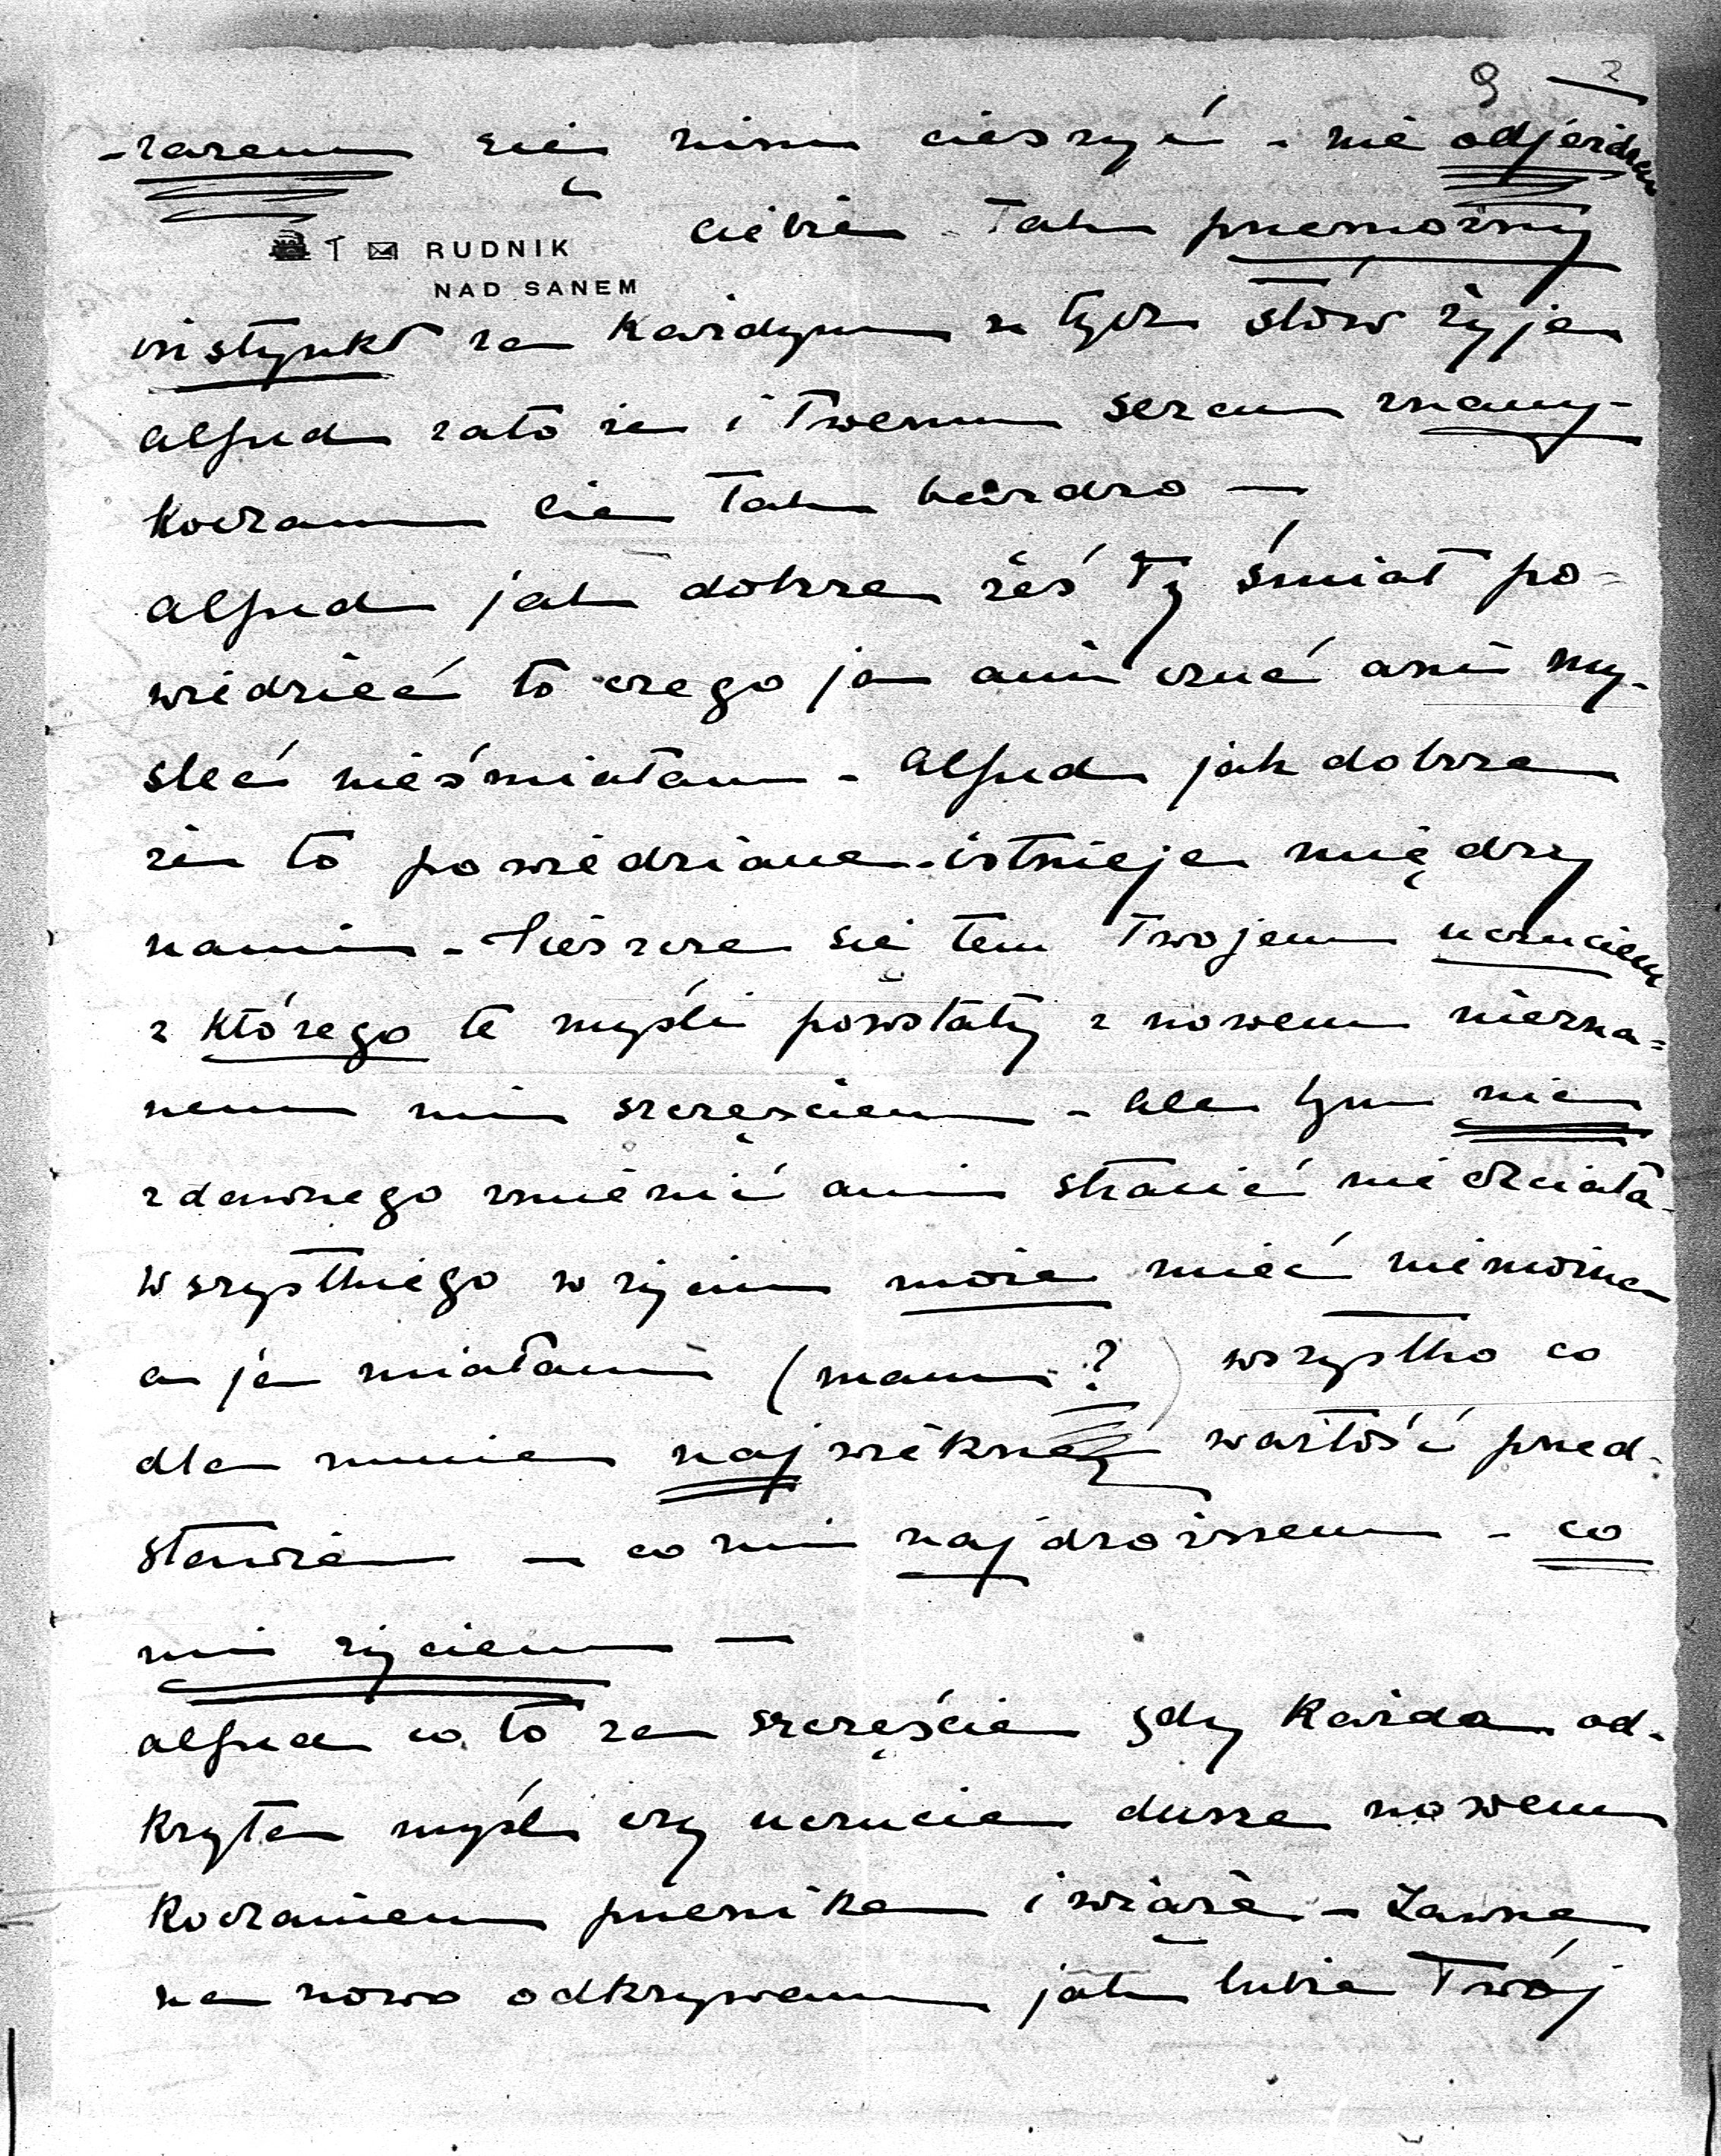 9 2
-razem się nim cieszyć - nie odjeżdżam
ciebie - Tak przemożny
RUDNIK
NAD SANEM
instynkt za każdym z tych słów żyje
Alfred zato że i Twemu sercu znany -
Kocham cię Tak bardzo —
Alfred jak dobrze żeś Ty śmiał po-
wiedzieć to czego ja ani czuć ani my-
sleć nieśmiałam - Alfred jak dobrze
że to powiedziane - istnieje między
nami - Cieszcze się tem Twojem uczuciem
z którego te myśli powstały z nowem niezna=
nem mi szczęściem - ale tym nic
z dawnego zmienić ani stracić nie chciała
Wszystkiego w życiu może mieć nie można
a ja miałam (mam ?) wszystko co
dla mnie największą wartość przed-
stawia — co mi najdroższem - co
mi życiem —
Alfred co to za szczęście gdy Każda od-
kryta myśl czy uczucie dusze nowem
Kochaniem przenika i wiąże - Zawsze
na nowo odkrywam jak lubię Twój